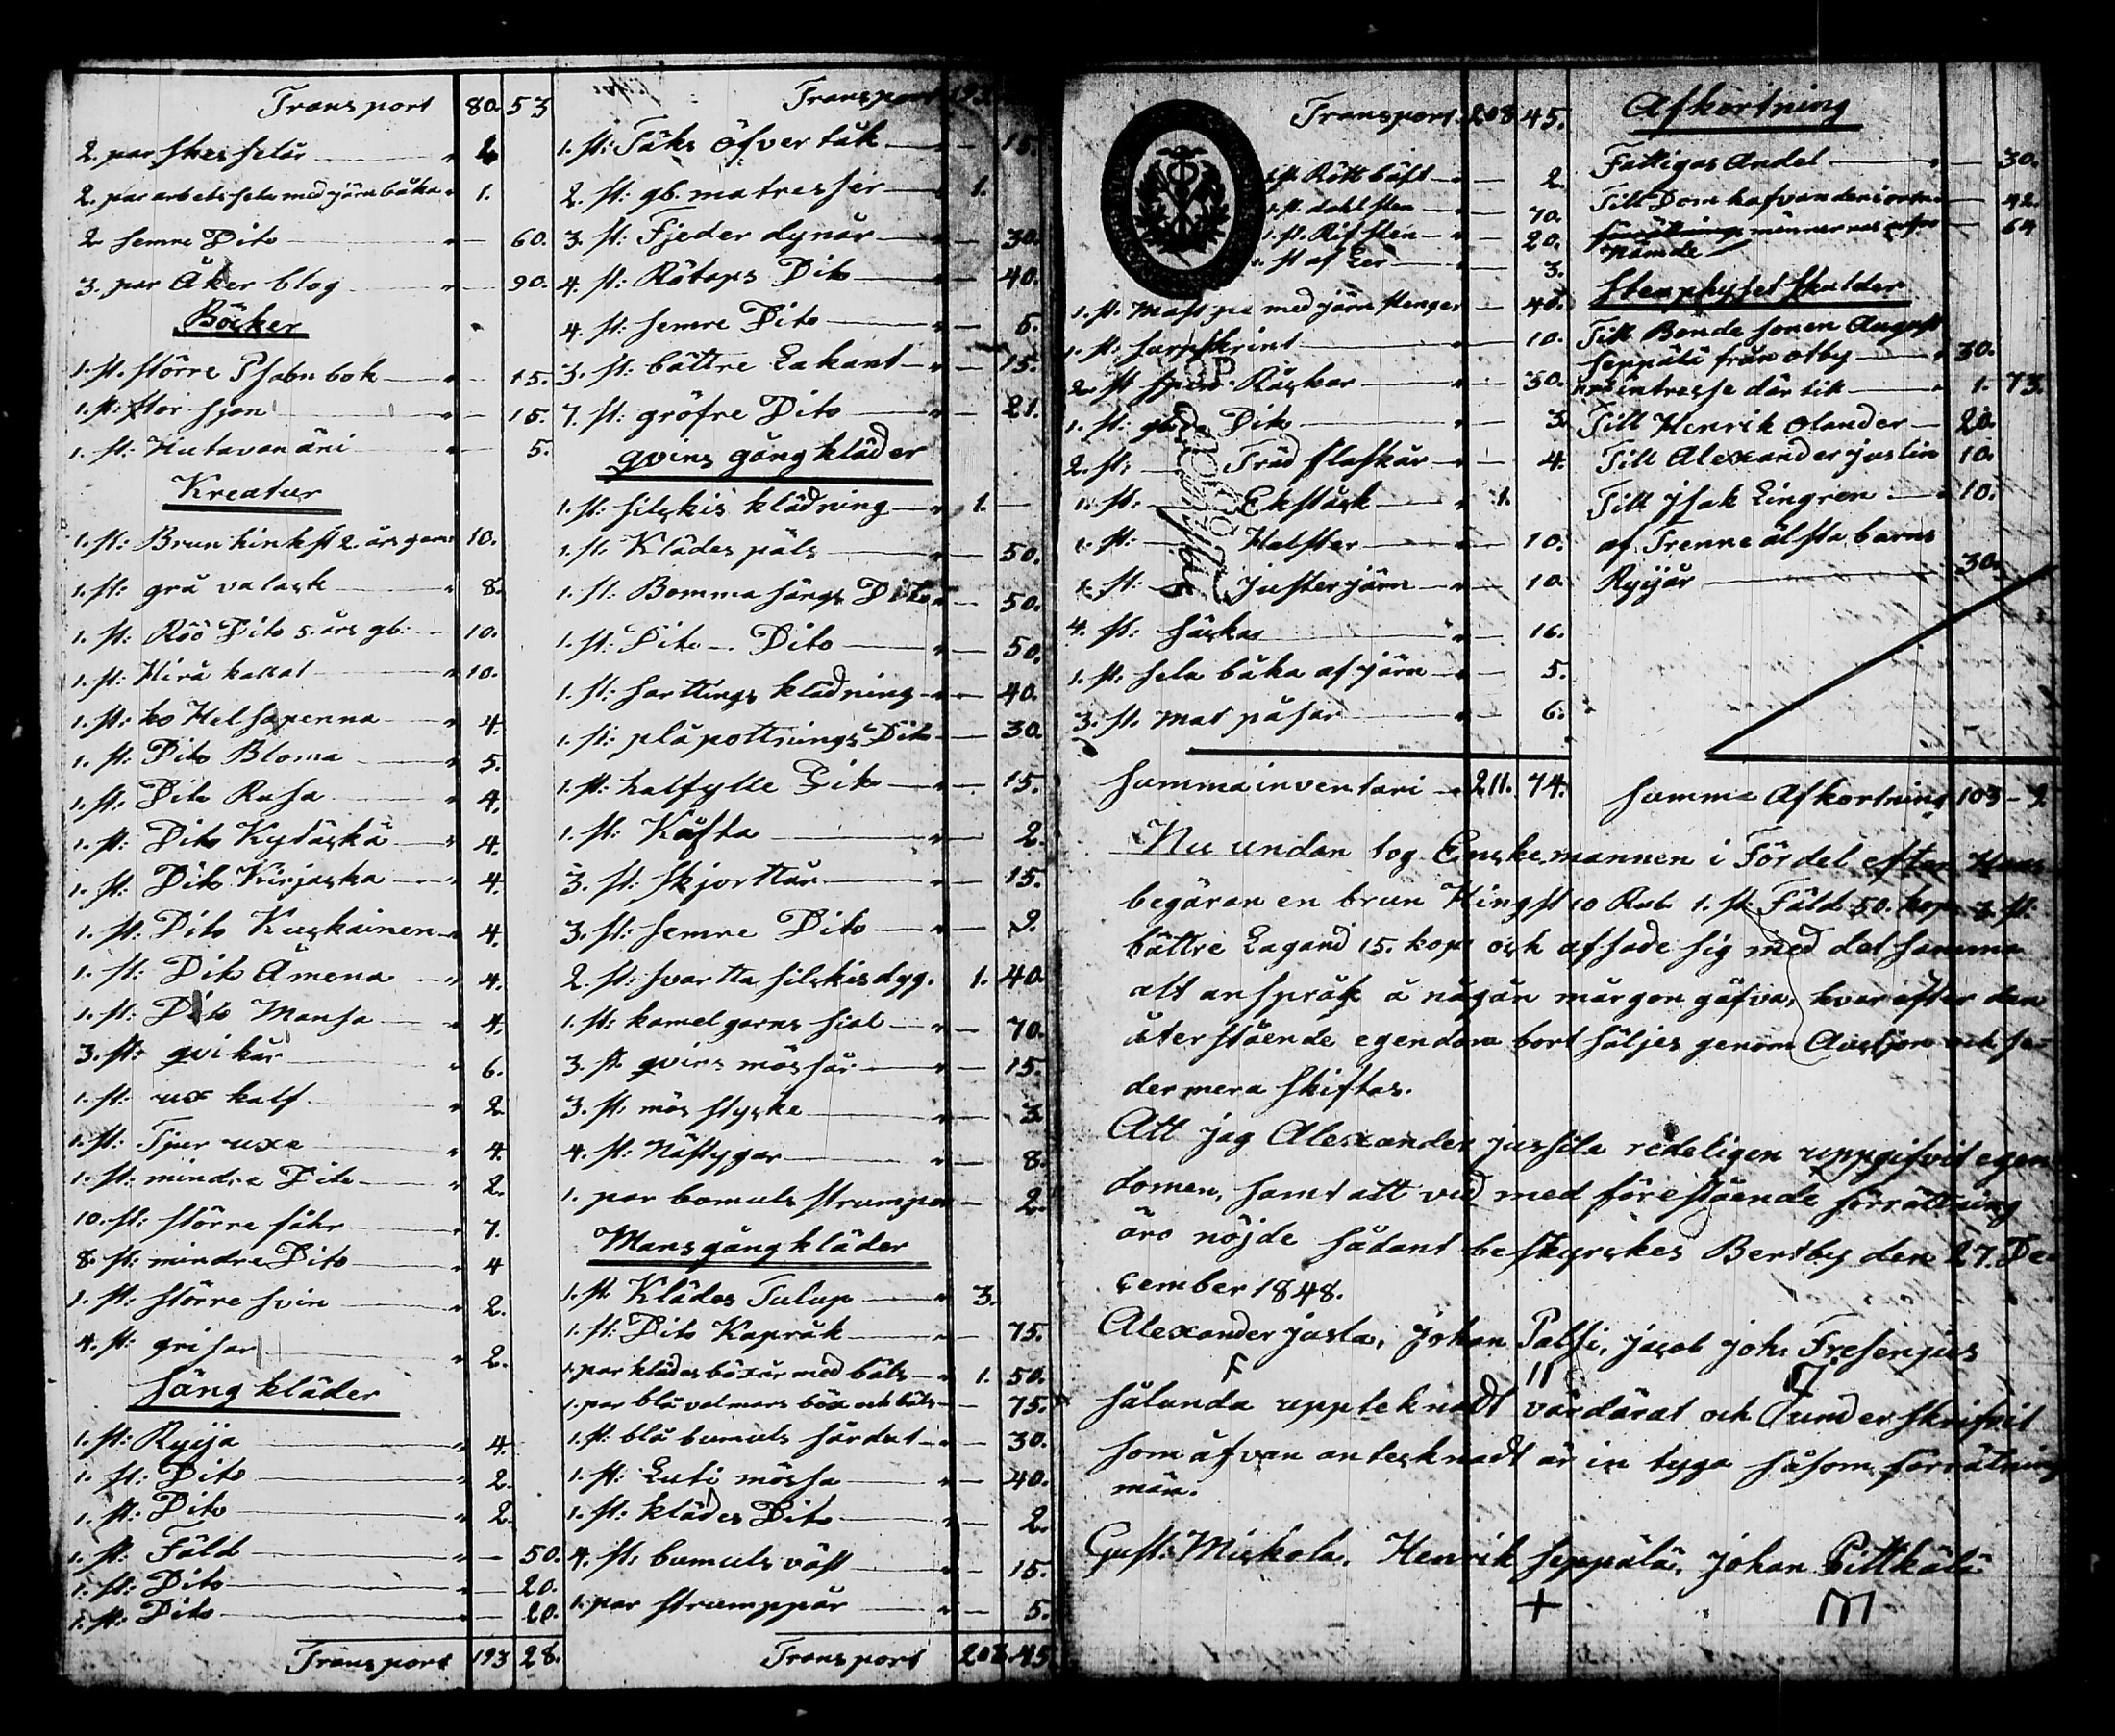 Transport 80. 53
2. par skes selår " 2
2. par arbets sela med järn båka " 1.
2 semre Dito " — 60.
3. par Åker blog " — 90.
Böcker
1. st. större Psabn bok " — 15.
1. st: stor sjon " — 15.
1. st: Hutavanäni " — 5.
Kreatur
1. st: Brun hinkst 2. års gam 10.
1. st: grå valack " 8.
1. st: Röö Dito 5. års gb: — 10.
1. st: Hirå " 10.
1. st: ko Helsapenna " 4.
1. st: Dito Bloma " 5.
1. st: Dito Rusa " 4.
1. st: Dito Kytäskä " 4.
1. st: Dito Kirjaska " 4.
1. st: Dito Kuskainen " 4.
1. st: Dito Åmena " 4.
1. st: Dito Mansa " 4.
3. st: qvikår " 6.
1. st: ux kalf " 2
1. st: Tjur uxe " 4
1. st: mindre Dito " 2.
10. st: större fåhr " 7.
8. st: mindre Dito " 4
1. st: större svin " 2.
4. st: grisar " 2.
Säng kläder
1. st: Ryija " 4.
1. st: Dito " 2.
1. st: Dito " 2.
1. st: Fäld " — 50.
1. st: Dito " — 20.
1. st: Dito " — 20.
Transport 193 28.
Transport 193
1. st: Täks öfver tåk " — 15.
2. st: gb. matresser " 1.
3. st: Fjeder dynår " — 30.
4. st: Rötaps Dito " — 40.
4. st: semre Dito " — 6.
3. st: bättre Lakant " — 15.
7. st: gröfre Dito " — 21.
qvins gång kläder
1. st: silskis klädning " 1. —
1. st. Klädes päls " — 50.
1. st: Bomma sängs Dito " — 50.
1. st: Dito — Dito " — 50.
1. st: sarttings klädning " — 40.
1. st: plåpottnings Dito — 30.
1. st: halfylle Dito " — 15.
1. st: Kåfta " — 2.
3. st: skjorttår " — 15.
3. st: semre Dito " — 9.
2. st: svartta silskisdyg. 1. 40.
1. st: kamelgarns sial " — 70.
3. st qvins mössår " — 15.
3. st. mös styske " — 3
4. st: Nästygar " — 8.
1. par bomuls strumpor — 2.
Mansgång kläder
1. st. Klädes Tulup " 3.
1. st: Dito Kapråk " — 75.
1. par klädes böxår med bäls " 1. 50.
1. par blå valmars böx och bäls — 75.
1. st: blå bumuls särdut " — 30.
1. st: Luti mössa " — 40.
1. st: klädes Dito " — 2.
4. st. bumuls väst " — 15.
1. par strumppår " — 5.
Transport 208. 45.
Transport. 208 45.
1. st Rött bäst " — 2.
1. st. dahl sten " — 70.
1. st. Rif sten " — 20.
st af Ler " — 3.
1. st. Mast med järn stenger — 40.
1. st: skrint " — 10.
2. st Räskor " — 30.
1. st: Dito " — 3.
2. st: Träd flaskår " — 4.
1. st: — Ekståsk " 1.
1. st: — Halster " — 10.
1. st: — justerjärn " — 10.
4. st: säskar " — 16.
1. st: sela båka af järn " — 5.
3. st. mat påsar " — 6.
Summainventari " 211. 74.
Afkortning
Fattigas Andel " — 30.
Till Domhafvanden — 42.
männernas 64
nämde
skulder
Till Bonde sonen August
Seppälä från otby " 30.
intresse där till " 1. 73.
Till Henrik olander — 20.
Till Alexander justin 10.
Till jsak Lingren " 10.
af Trenne älsta barns
Ryijår 30.
Summa Afkortning 103 – 9
Nu undan tog Enskemannen i Fördel efter Hans
begäran en brun Hingst 10 Rub 1. st. Fäld 50. kop. 3. st:
bättre Lagand 15. kop. och afsade sig med det samma
alt anspråk å någån mårgon gåfva, hvarefter den
återstående egendom bort säljes genom Auctjon och se-
dermera skiftas.
Att jag Alexander jussila redeligen uppgifvit egen
domen, samt att vid med förestående förrättning
äro nöjde sådant beskyrskes Bertby den 27. De-
cember 1848.
Alexander jusla, Johan Palsi, jacob joh. Fresenjus
F 11
sålunda uppteknadt värdårat och underskrifvit
som åfvan antecknadt är in tyga såsom förrätning
män.
Gust: Miskola. Henrik Seppälä, johan Pittkälä
+ M